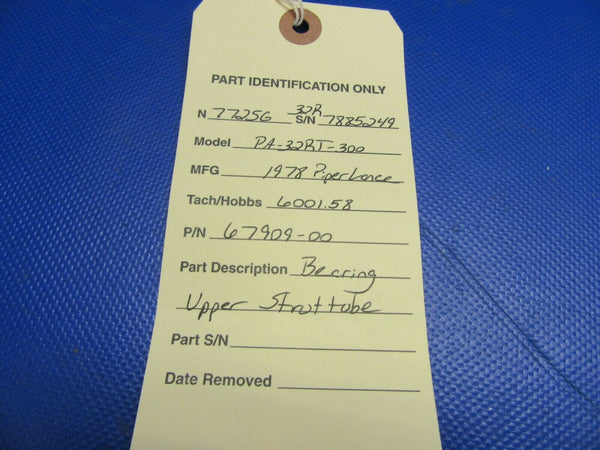 PART IDENTIFICATION ONLY
32R
N 77256 S/N 7885249
Model PA-32RT-300
MFG 1978 Piper Lance
Tach/Hobbs 6001.58
P/N 67909-00
Part Description Bearing
Upper Strut tube
Part S/N
Date Removed